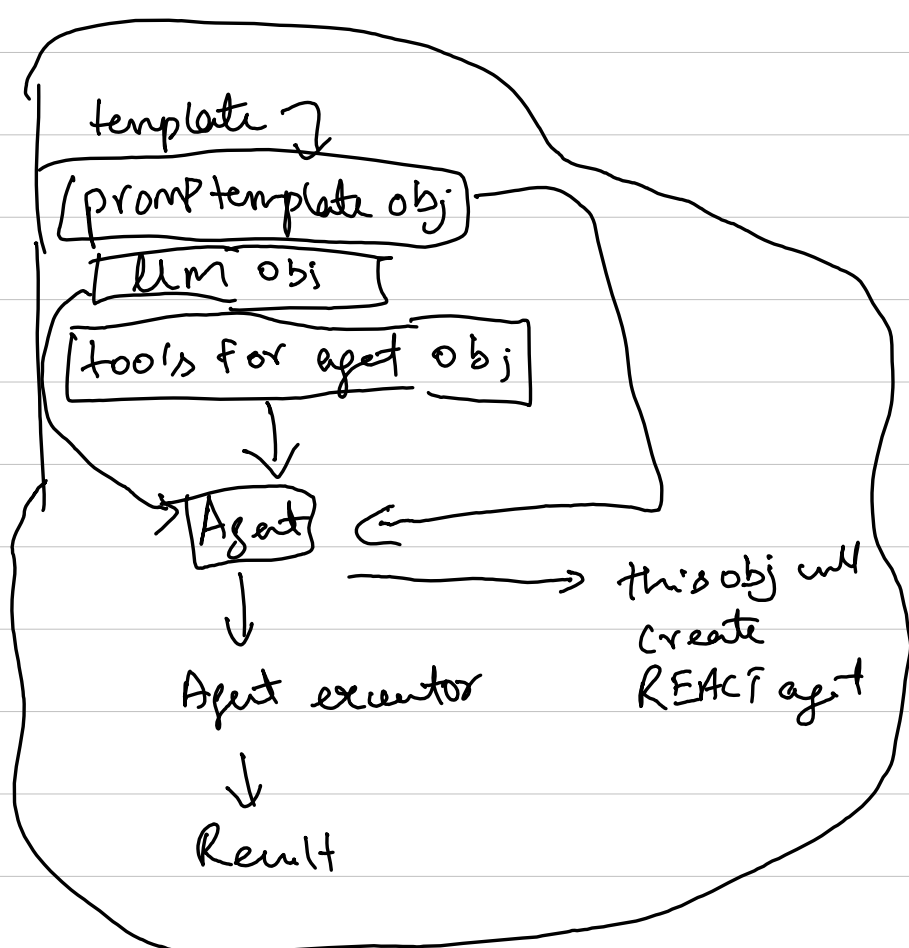 template
promp template obj
llm obj
tools for aget obj
Agent
this obj will
create
REACT aget
Agent executor
Result